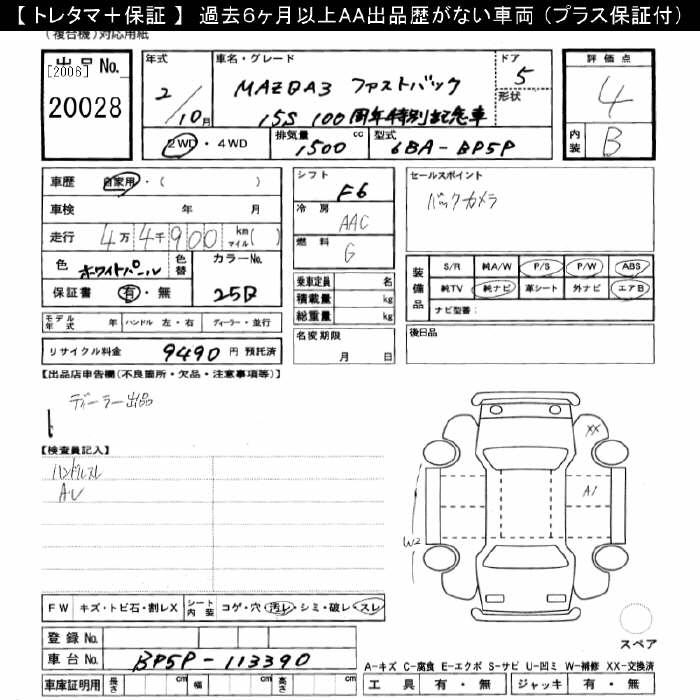 【 トレタマ＋保証 】 過去6ヶ月以上AA出品歴がない車両 (プラス保証付)
(複合機)対応用紙
出品 No.
[2006]
20028
年式
2/10月
車名・グレード
MAZDA3 ファストバック
15S 100周年特別記念車
ドア
5
形状
2WD・4WD
排気量
1500 cc
型式
6BA-BP5P
評価点
4
内装
B
車歴 自家用・( )
車検 年 月
走行 4万4千900 kmマイル( )
色 ホワイトパール 色替
カラーNo.
25D
保証書 有・無
モデル年式 年 ハンドル 左・右 ディーラー・並行
リサイクル料金 9490 円 預託済
シフト
F6
冷房
AAC
燃料
G
乗車定員 名
積載量 kg
総重量 kg
名変期限
月 日
セールスポイント
バックカメラ
装備品
S/R 純A/W P/S P/W ABS
純TV 純ナビ 革シート 外ナビ エアB
ナビ型番：
後日品
【出品店申告欄(不良箇所・欠品・注意事項等)】
ディーラー出品
【検査員記入】
ハンドルスレ
AU
XX
A1
W2
FW キズ・トビ石・割レX
シート内装 コゲ・穴・汚レ・シミ・破レ・スレ
登録 No.
車台 No. BP5P-113390
車庫証明用 長さ cm 幅 cm 高さ cm
スペア
A-キズ C-腐食 E-エクボ S-サビ U-凹ミ W-補修 XX-交換済
工具 有・無 ジャッキ 有・無